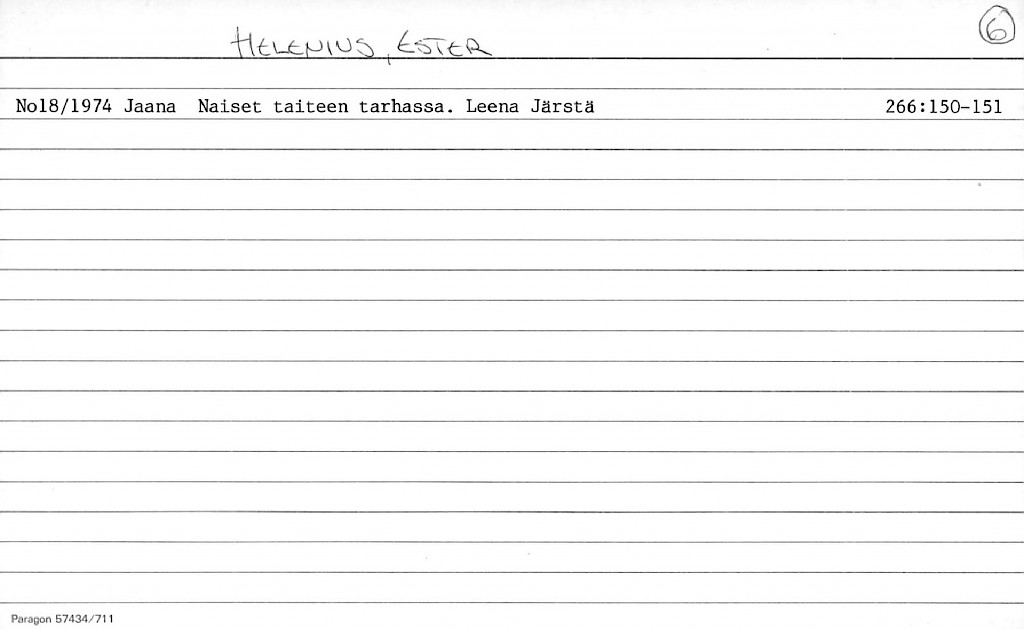 HELENIUS, ESTER
6
No18/1974 Jaana Naiset taiteen tarhassa. Leena Järstä 266:150-151
Paragon 57434/711